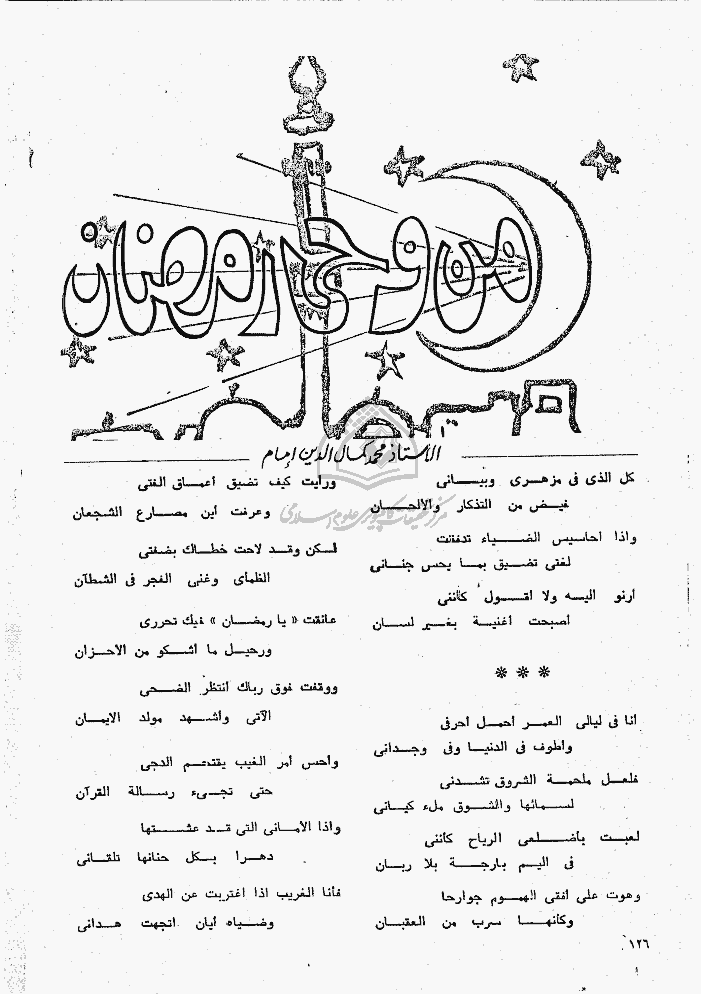 من وحي رمضان
للأستاذ محمد كمال الدين إمام
كل الذى فى مزهـرى وبيـــانى
فيـض من التذكار والألحـــان
واذا احاسيس الضيــاء تدفقت
لغتى تضـيق بمـا يحس جنــانى
أرنو اليـه ولا أقــول كأننى
أصبحت أغنيـة بغـير لســان
***
أنا فى ليالى العمـر أحمـل أحرفى
وأطوف فى الدنيـا وفى وجـدانى
فلعـل ملحمـة الشروق تشـدنى
لسـمائها والشـوق ملء كيـانى
لعبـت بأضـلعى الرياح كأننى
فى اليـم بارجــة بلا ربـان
وهوت على أفقى الهمـوم جوارحا
وكأنهــا سرب من العقبـان
ورأيت كيف تضيق أعمـاق الفتى
وعرفت أين مصـارع الشجعان
لـكن وقـد لاحت خطـاك بضفتى
الظمأى وغنى الفجر فى الشطآن
عانقت « يا رمضـان » فيك تحررى
ورحيـل ما أشـكو من الأحـزان
ووقفت فوق رباك أنتظر الضـحى
الآتى وأشـهد مولد الايمـان
وأحس أمر الغيب يقتحـم الدجى
حتى تجـىء رسـالة القرآن
واذا الأمـانى التى قـد عشـتها
دهـرا بـكل حنانها تلقـانى
فأنا الغريب اذا اغتربت عن الهدى
وضـياه أيان اتجهت هـدانى
١٢٦